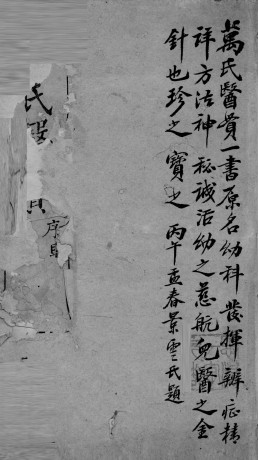 萬氏醫貫一書原名幼科發揮辨症精
祥方法神秘誠活幼之慈航兒醫之金
針也珍之寶之 丙午孟春景雲氏題
氏醫貫
序